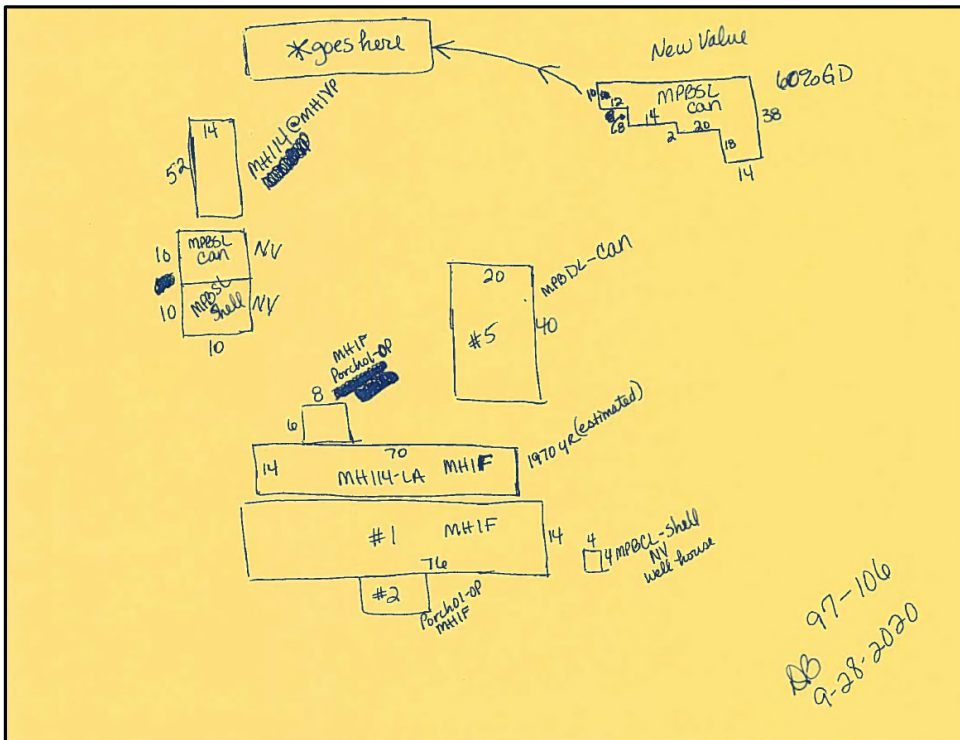 *goes here
New Value
60% GD
MPBSL
can
10
12
8
14
2
20
18
38
14
14
52
MH114@MH1VP
10
MPBSL
can
NV
10
MPBSL
Shell
NV
10
20
#5
40
MPBDL-can
MH1F
Porch01-OP
8
6
14
70
MH114-LA MH1F
1970 yr (estimated)
#1 MH1F
76
14
#2
Porch01-OP
MH1F
4
4 MPBCL-Shell
NV
well house
97-106
DB
9-28-2020